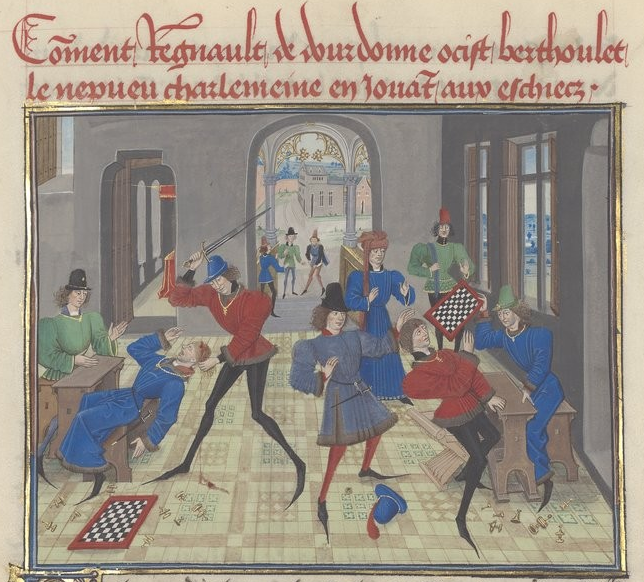 Co̅ment Regnault de dourdonne ocist berthoulet
le nepueu charlemeine en Jouãt aux eschiecz .